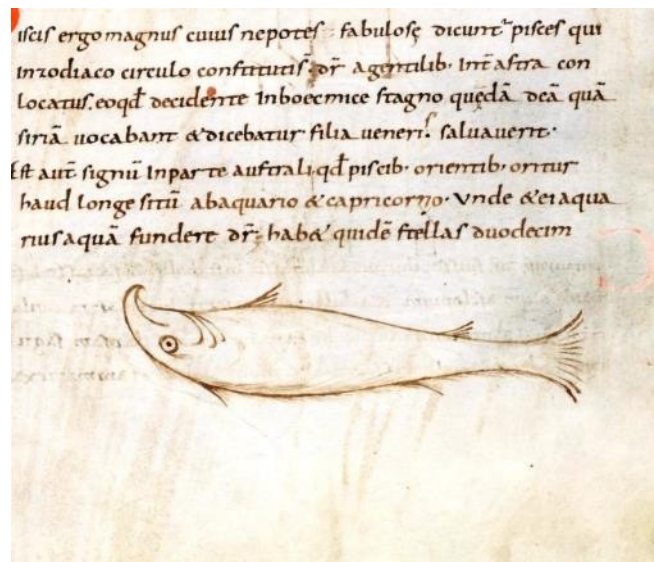 iscis ergo magnus cuius nepotes fabulosę dicunt᷑ pisces qui
in zodiaco circulo constitutis dr̄ agentilib· Int̄ astra con
locatus· eoqd̄ decidente In boecmice stagno quędā deā quā
siriā uocabant &dicebatur filia ueneris saluauerit·
Est aut̄ signū In parte australi qd̄ piscib· orientib· oritur
haud longe sitū ab aquario & capricorno· Vnde & ei aqua
rius aquā fundere dr̄· hab& quidē stellas duodecim